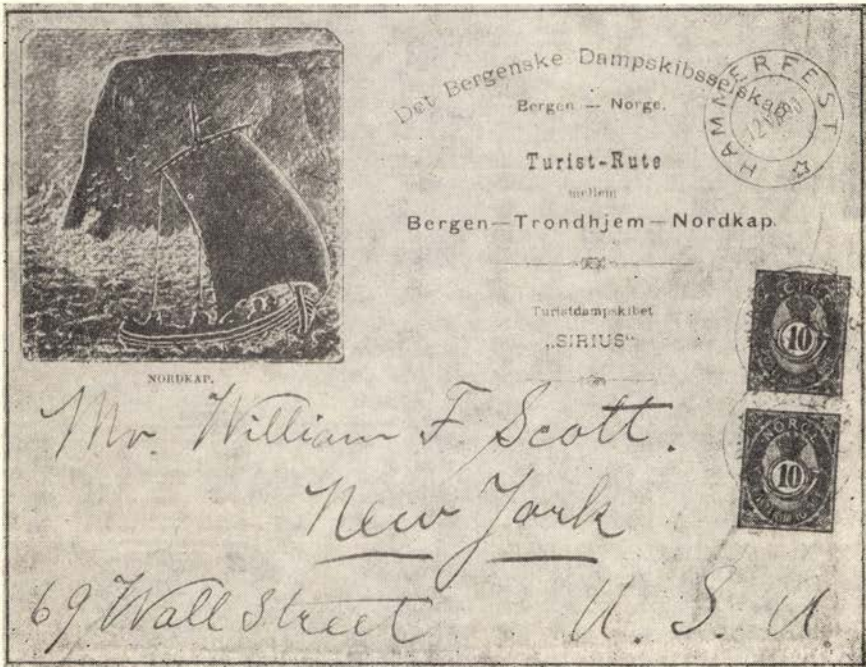 Det Bergenske Dampskibsselskab
Bergen — Norge.
Turist-Rute
mellem
Bergen—Trondhjem—Nordkap.
Turistdampskibet
„SIRIUS“
HAMMERFEST
NORDKAP.
NORGE
10
NORGE
10
Mr. William F. Scott.
New York
69 Wall Street U. S. A.